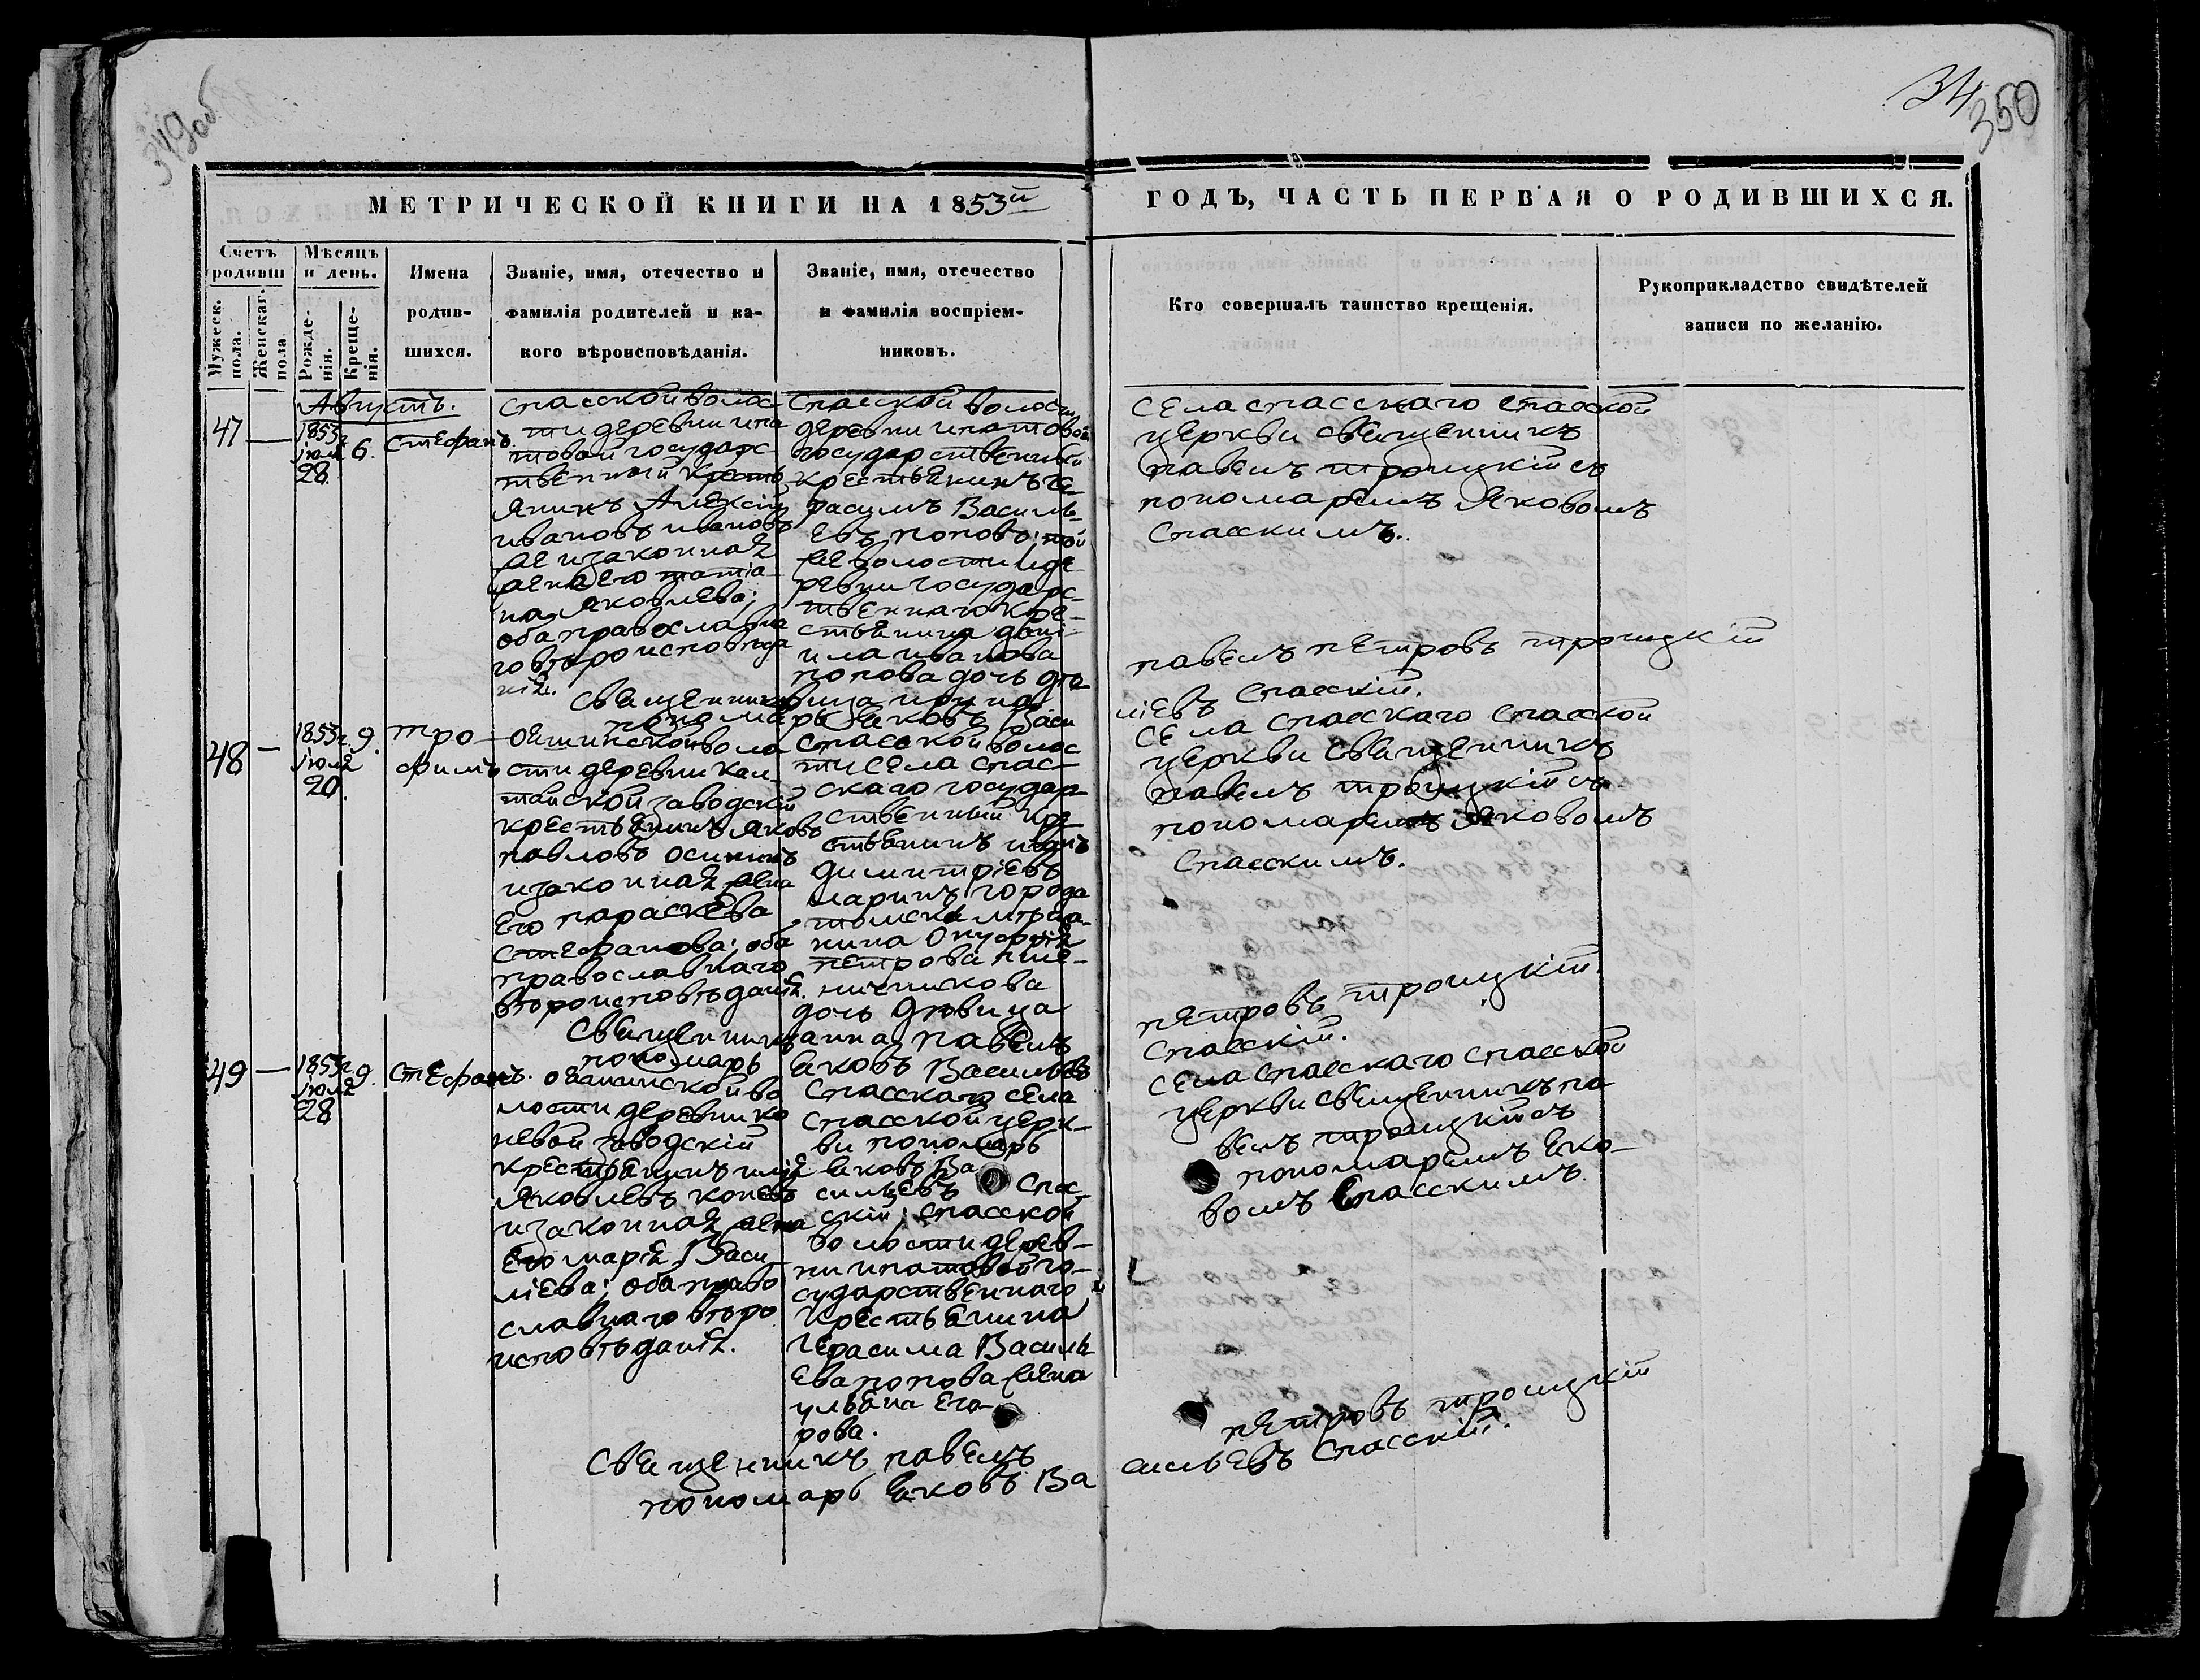 349об
34
350
МЕТРИЧЕСКОЙ КНИГИ НА 1853й
ГОДЪ, ЧАСТЬ ПЕРВАЯ О РОДИВШИХСЯ.
Счетъ родивш
Мужеск. пола.
Женскаг. пола
Мѣсяцъ и день.
Рожде-нія.
Креще-нія.
Имена
родив-
шихся.
Званіе, имя, отечество и
фамилія родителей и ка-
кого вѣроисповѣданія.
Званіе, имя, отечество
и фамилія воспріем-
никовъ.
Кто совершалъ таинство крещенія.
Рукоприкладство свидѣтелей
записи по желанію.
Августъ.
47
—
1853г.
іюля
28
6.
Стефанъ.
Спасской волос
ти деревни ипа
товой государс
твенный кресть
янинъ Алексій
ивановъ ивановъ
и законная
жена его татіа
на яковлева;
оба православна
го вѣроисповѣда
нія.
Спасской волости
деревни ипатовой
государственный
крестьянинъ ге
расимъ Василь
евъ поповъ; той
же волости и де
ревни государс
твеннаго кре
стьянина дані
ила иванова
попова дочь дѣ
вица ирина
села спасскаго спасской
церкви священникъ
павелъ троицкій съ
пономаремъ яковомъ
Спасскимъ.
Священникъ
павелъ петровъ троицкій
пономарь яковъ Васи
ліевъ Спасскій.
48
—
1853г.
іюля
20.
9.
тро
фимъ
ояшинской воло
сти деревни
заводскій
крестьянинъ яковъ
павловъ осининъ
и законная жена
его параскева
стефанова; оба
православнаго
вѣроисповѣданія.
Спасской волос
ти села спас
скаго государ
ственный кре
стьянинъ
димитріевъ
маринъ города
томска мѣща
нина Онуфрія
петрова пше
ничникова
дочь дѣвица
анна
села спасскаго спасской
церкви священникъ
павелъ троицкій съ
пономаремъ яковомъ
Спасскимъ.
Священникъ павелъ
петровъ троицкій.
пономарь яковъ Васильевъ
спасскій.
49
—
1853г.
іюля
28
9.
Стефанъ.
ояшинской во
лости деревни ко
невой заводскій
крестьянинъ илія
яковлевъ коневъ
и законная жена
его марія Васи
ліева; оба право
славнаго вѣро
исповѣданія.
Спасскаго села
Спасской церк
ви пономарь
яковъ Ва
сильевъ Спас
скій; спасской
волости дерев
ни ипатовой го
сударственнаго
крестьянина
герасима Василь
ева попова жена
ульяна его
рова.
села спасскаго спасской
церкви священникъ па
велъ троицкій съ
пономаремъ яко
вомъ Спасскимъ.
Священникъ павелъ
петровъ троицкій
пономарь яковъ Ва
сильевъ Спасскій.